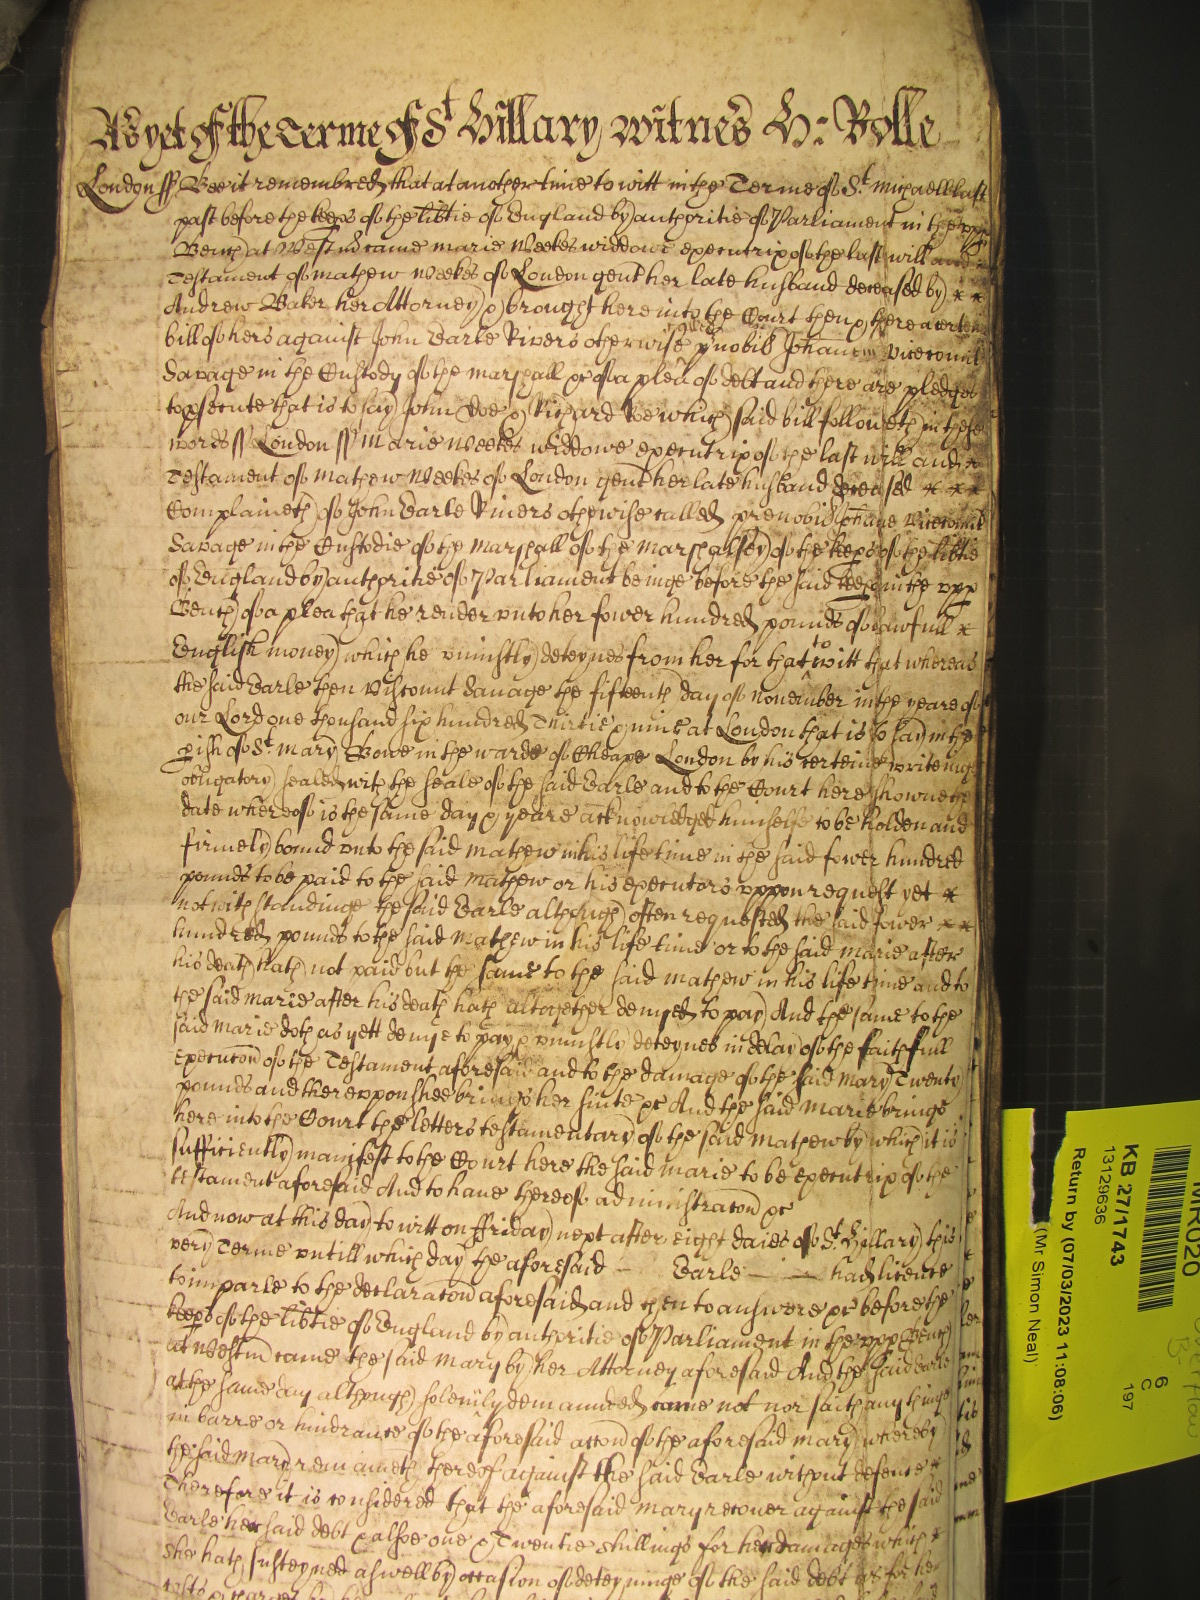 As yet of the Terme of St Hillary witnes H: Rolle
London ss Bee it remembred that at another time to witt in the Terme of St Michaell last
past before the keeps of the libtie of England by authoritie of Parliament in the upp
Bench at Westm came Marie Weekes widdowe executrix of the last will and
Testament of Mathew Weekes of London gent her late husband deceased by
Andrew Baker her Attorney & brought here into the Court then & there a certen
bill of hers against John Earle Rivers otherwise called p nobis Johanem vicecomit
Savage in the Custody of the Marshall &c of a plea of debt and there are pledges
to psecute that is to say John Doe & Richard Roe which said bill followeth in these
words ss London ss Marie Weekes widdowe executrix of the last will and
Testament of Mathew Weekes of London gent her late husband deceased
Complaineth of John Earle Rivers otherwise called pre nobis Johane vicecomit
Savage in the Custodie of the Marshall of the Marshalsey of the keeps of the libtie
of England by authoritie of Parliament beinge before the said keeps in the upp
Bench of a plea that he render unto her fower hundred pounds of lawfull
English money which he uniustly deteynes from her for that to witt that whereas
the said Earle then Viscount Savage the fifteenth day of November in the yeare of
our Lord one thousand six hundred Thirtie & nine at London that is to say in the
pish of St Mary Bowe in the warde of Cheape London by his certeine writeinge
obligatory sealed with the seale of the said Earle and to the Court here shown the
date whereof is the same day & yeare acknowledged himselfe to be holden and
firmely bound unto the said Mathew in his life time in the said fower hundred
pounds to be paid to the said Mathew or his executors uppon request yet
notwithstandinge the said Earle although often requested the said fower
hundred pounds to the said Mathew in his life time or to the said Marie after
his death hath not paid but the same to the said Mathew in his life time and to
the said Marie after his death hath altogether denyed to pay And the same to the
said Marie doth as yett denye to pay & uniustly deteynes in delay of the faithfull
execucon of the Testament aforesaid and to the damage of the said Mary Twenty
pounds and thereuppon shee brings her suite &c And the said Marie brings
here into the Court the letters testamentary of the said Mathew by which it is
sufficiently manifest to the Court here the said Marie to be executrix of the
testament aforesaid And to have thereof administracon &c
And now at this day to witt on ffriday next after eight daies of St Hillary this
very Terme untill which day the aforesaid Earle had licence
to imparle to the declaracon aforesaid and then to answere &c before the
keeps of the libtie of England by authoritie of Parliament in the upp Bench
at Westm came the said Mary by her Attorney aforesaid And the said Earle
at the same day although solemly demaunded came not nor saith any thinge
in barre or hindrance of the aforesaid accon of the aforesaid Mary whereby
the said Mary remaineth thereof against the said Earle without defence
Therefore it is considered that the aforesaid Mary recover against the said
Earle her said debt & alsoe one & Twentie shillings for her damages which
she hath susteyned aswell by occasion of deteyninge of the said debt as for her
costs & charges
MR020
KB 27/1743
13129636
Return by (07/03/2023 11:08:06)
(Mr Simon Neal)
6
C
197